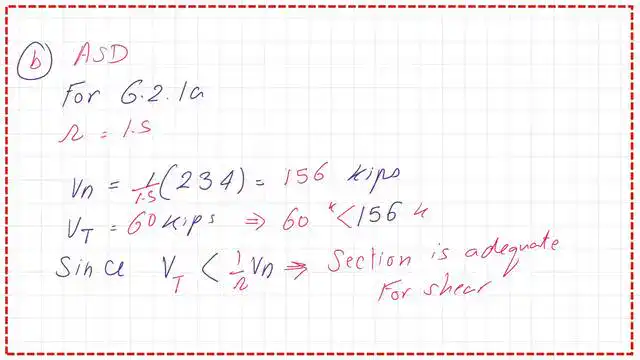 b ASD
For G.2.1a
Ω = 1.5
Vn = 1/1.5 (234) = 156 kips
VT = 60 kips ⇒ 60 k < 156 k
Since VT < 1/Ω Vn ⇒ Section is adequate
For shear